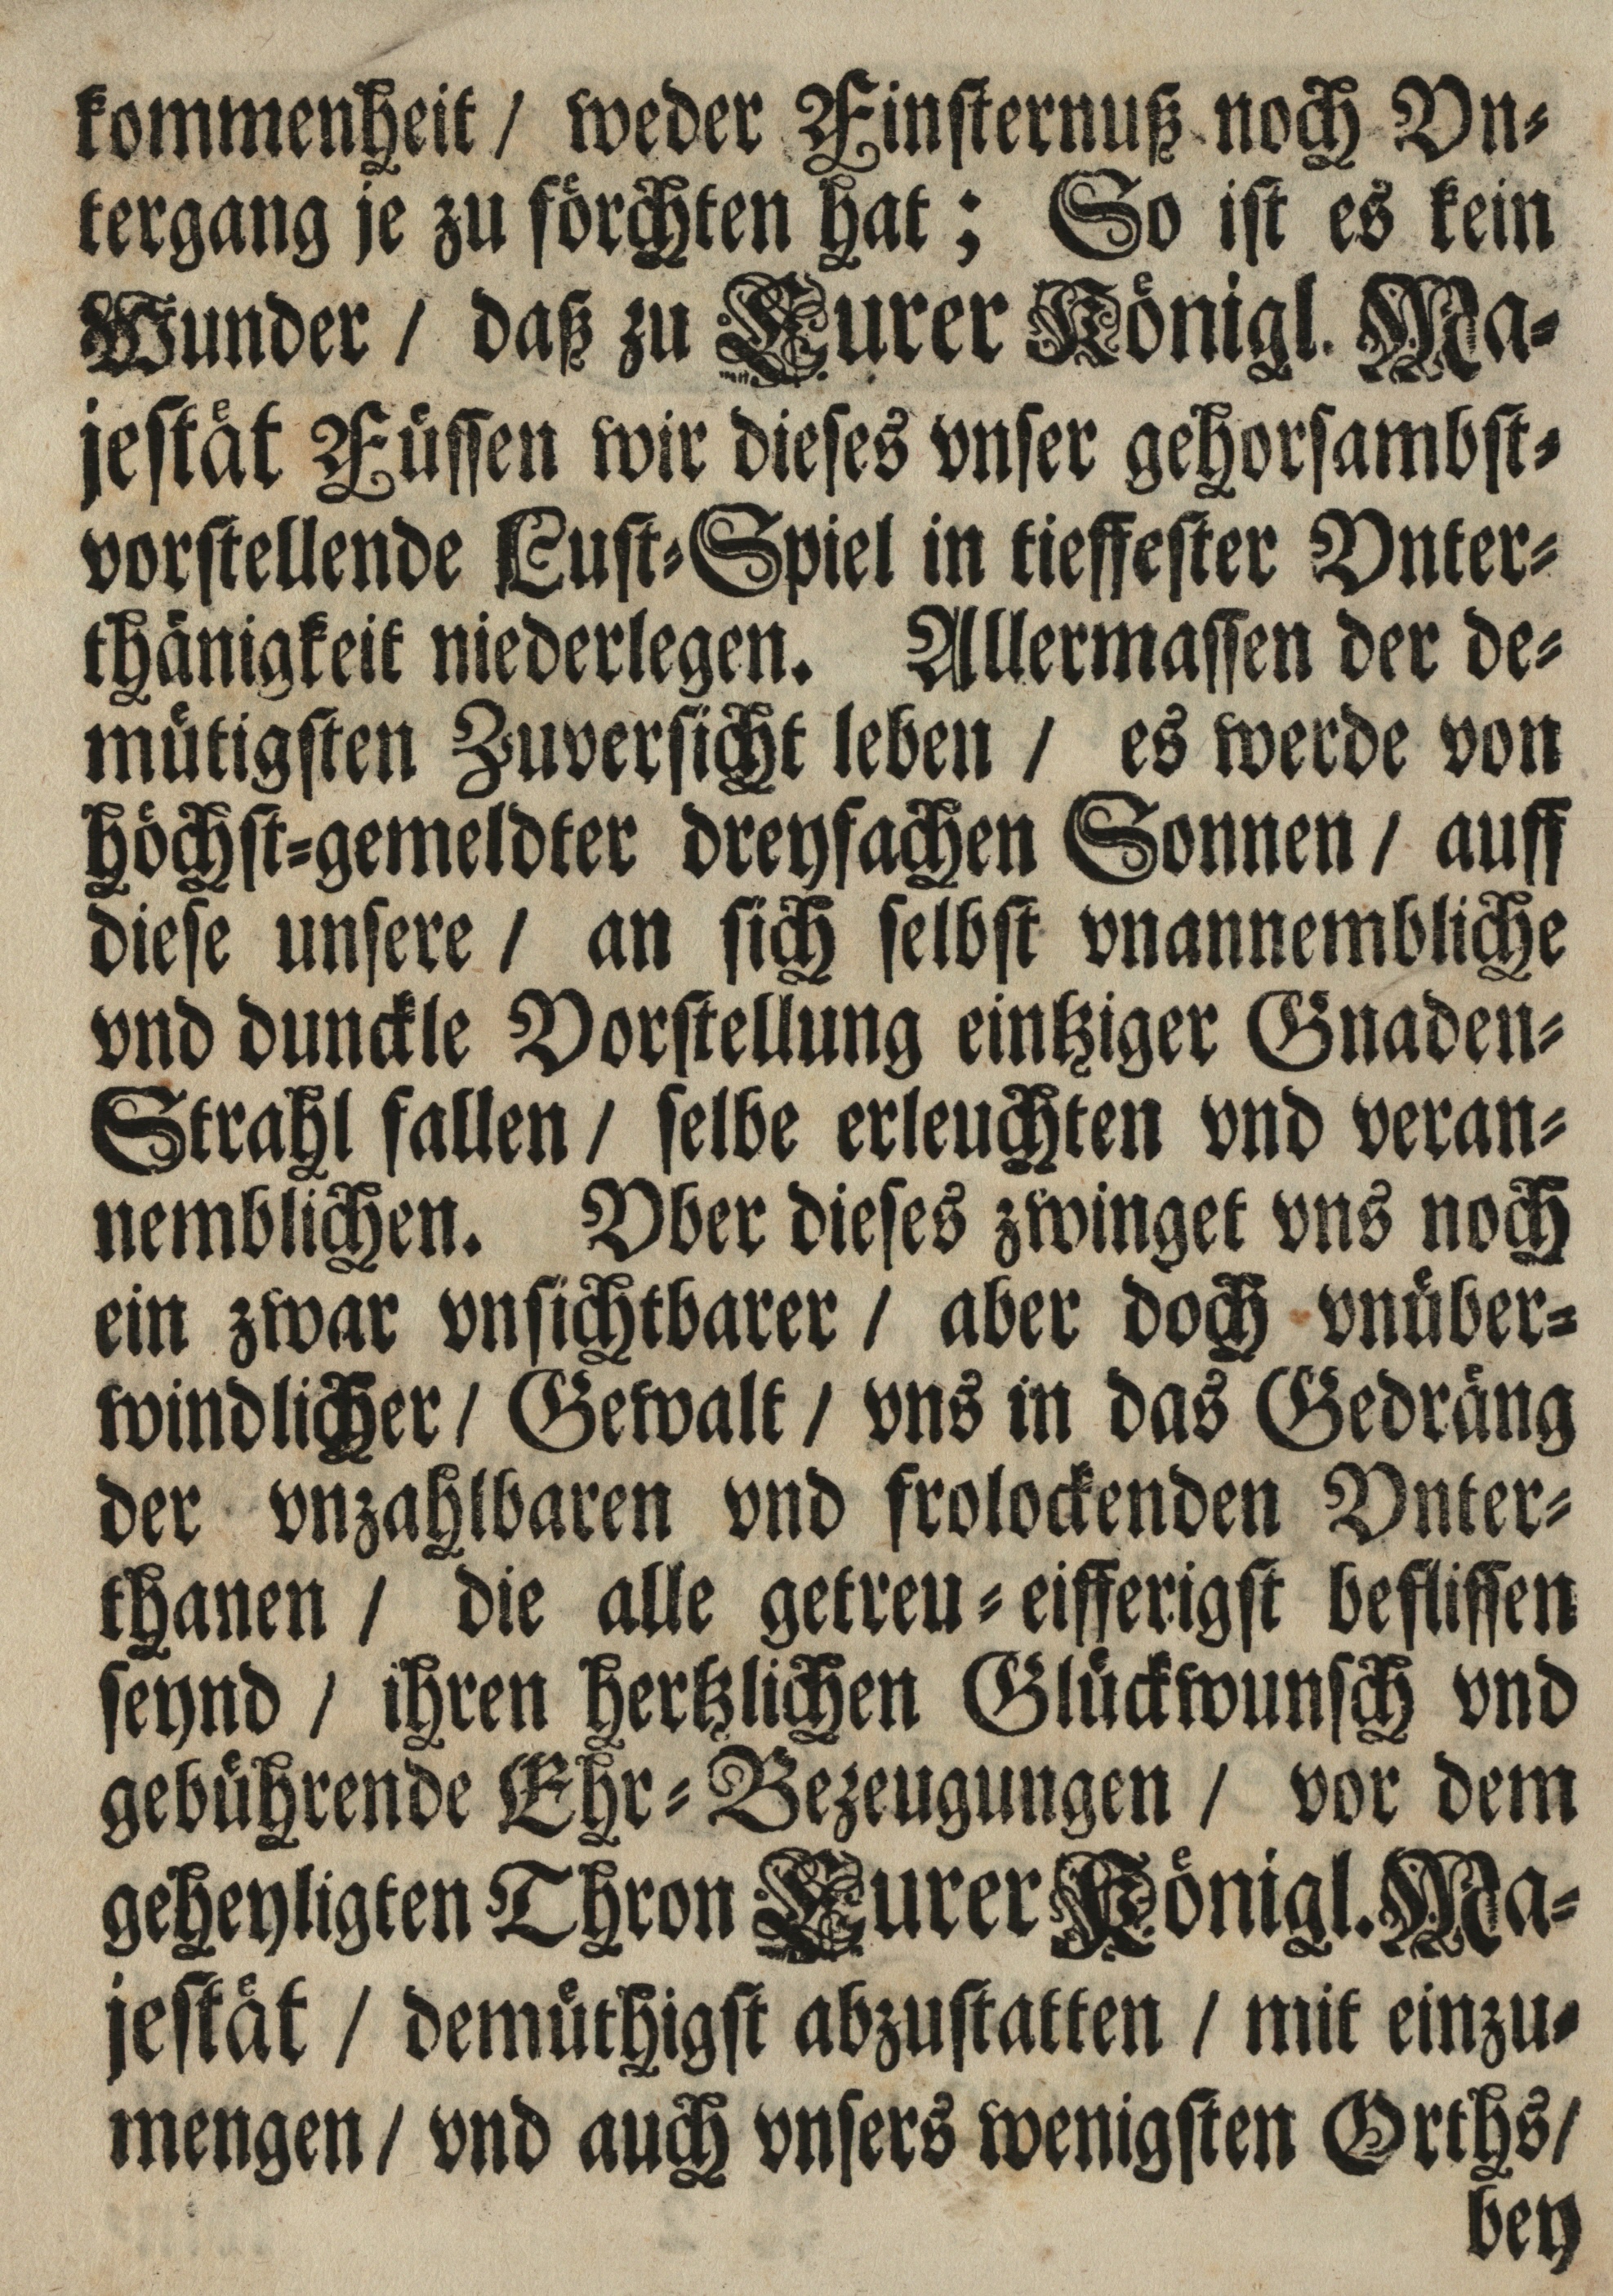 kommenheit / weder Finsternuß noch Vn-
tergang je zu förchten hat ; So ist es kein
Wunder / daß zu Eurer Königl. Ma-
jestät Füssen wir dieses vnser gehorsambst-
vorstellende Lust-Spiel in tieffester Vnter-
thänigkeit niederlegen. Allermassen der de-
mütigsten Zuversicht leben / es werde von
höchst-gemeldter dreyfachen Sonnen / auff
diese unsere / an sich selbst vnannembliche
vnd dunckle Vorstellung eintziger Gnaden-
Strahl fallen / selbe erleuchten vnd veran-
nemblichen. Vber dieses zwinget vns noch
ein zwar vnsichtbarer / aber doch vnüber-
windlicher / Gewalt / vns in das Gedräng
der vnzahlbaren vnd frolockenden Vnter-
thanen / die alle getreu-eifferigst beflissen
seynd / ihren hertzlichen Glückwunsch vnd
gebührende Ehr-Bezeugungen / vor dem
geheyligten Thron Eurer Königl. Ma-
jestät / demüthigst abzustatten / mit einzu-
mengen / vnd auch vnsers wenigsten Orths /
bey